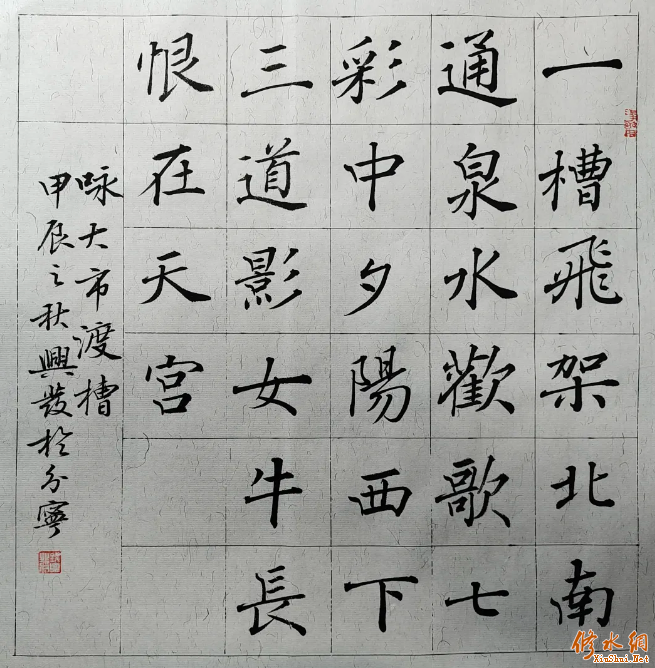 一槽飛架北南
通泉水歡歌七
彩中夕陽西下
三道影女牛長
恨在天宫
咏大市渡槽
甲辰之秋興發於分寧
修水網
XiuShui.Net